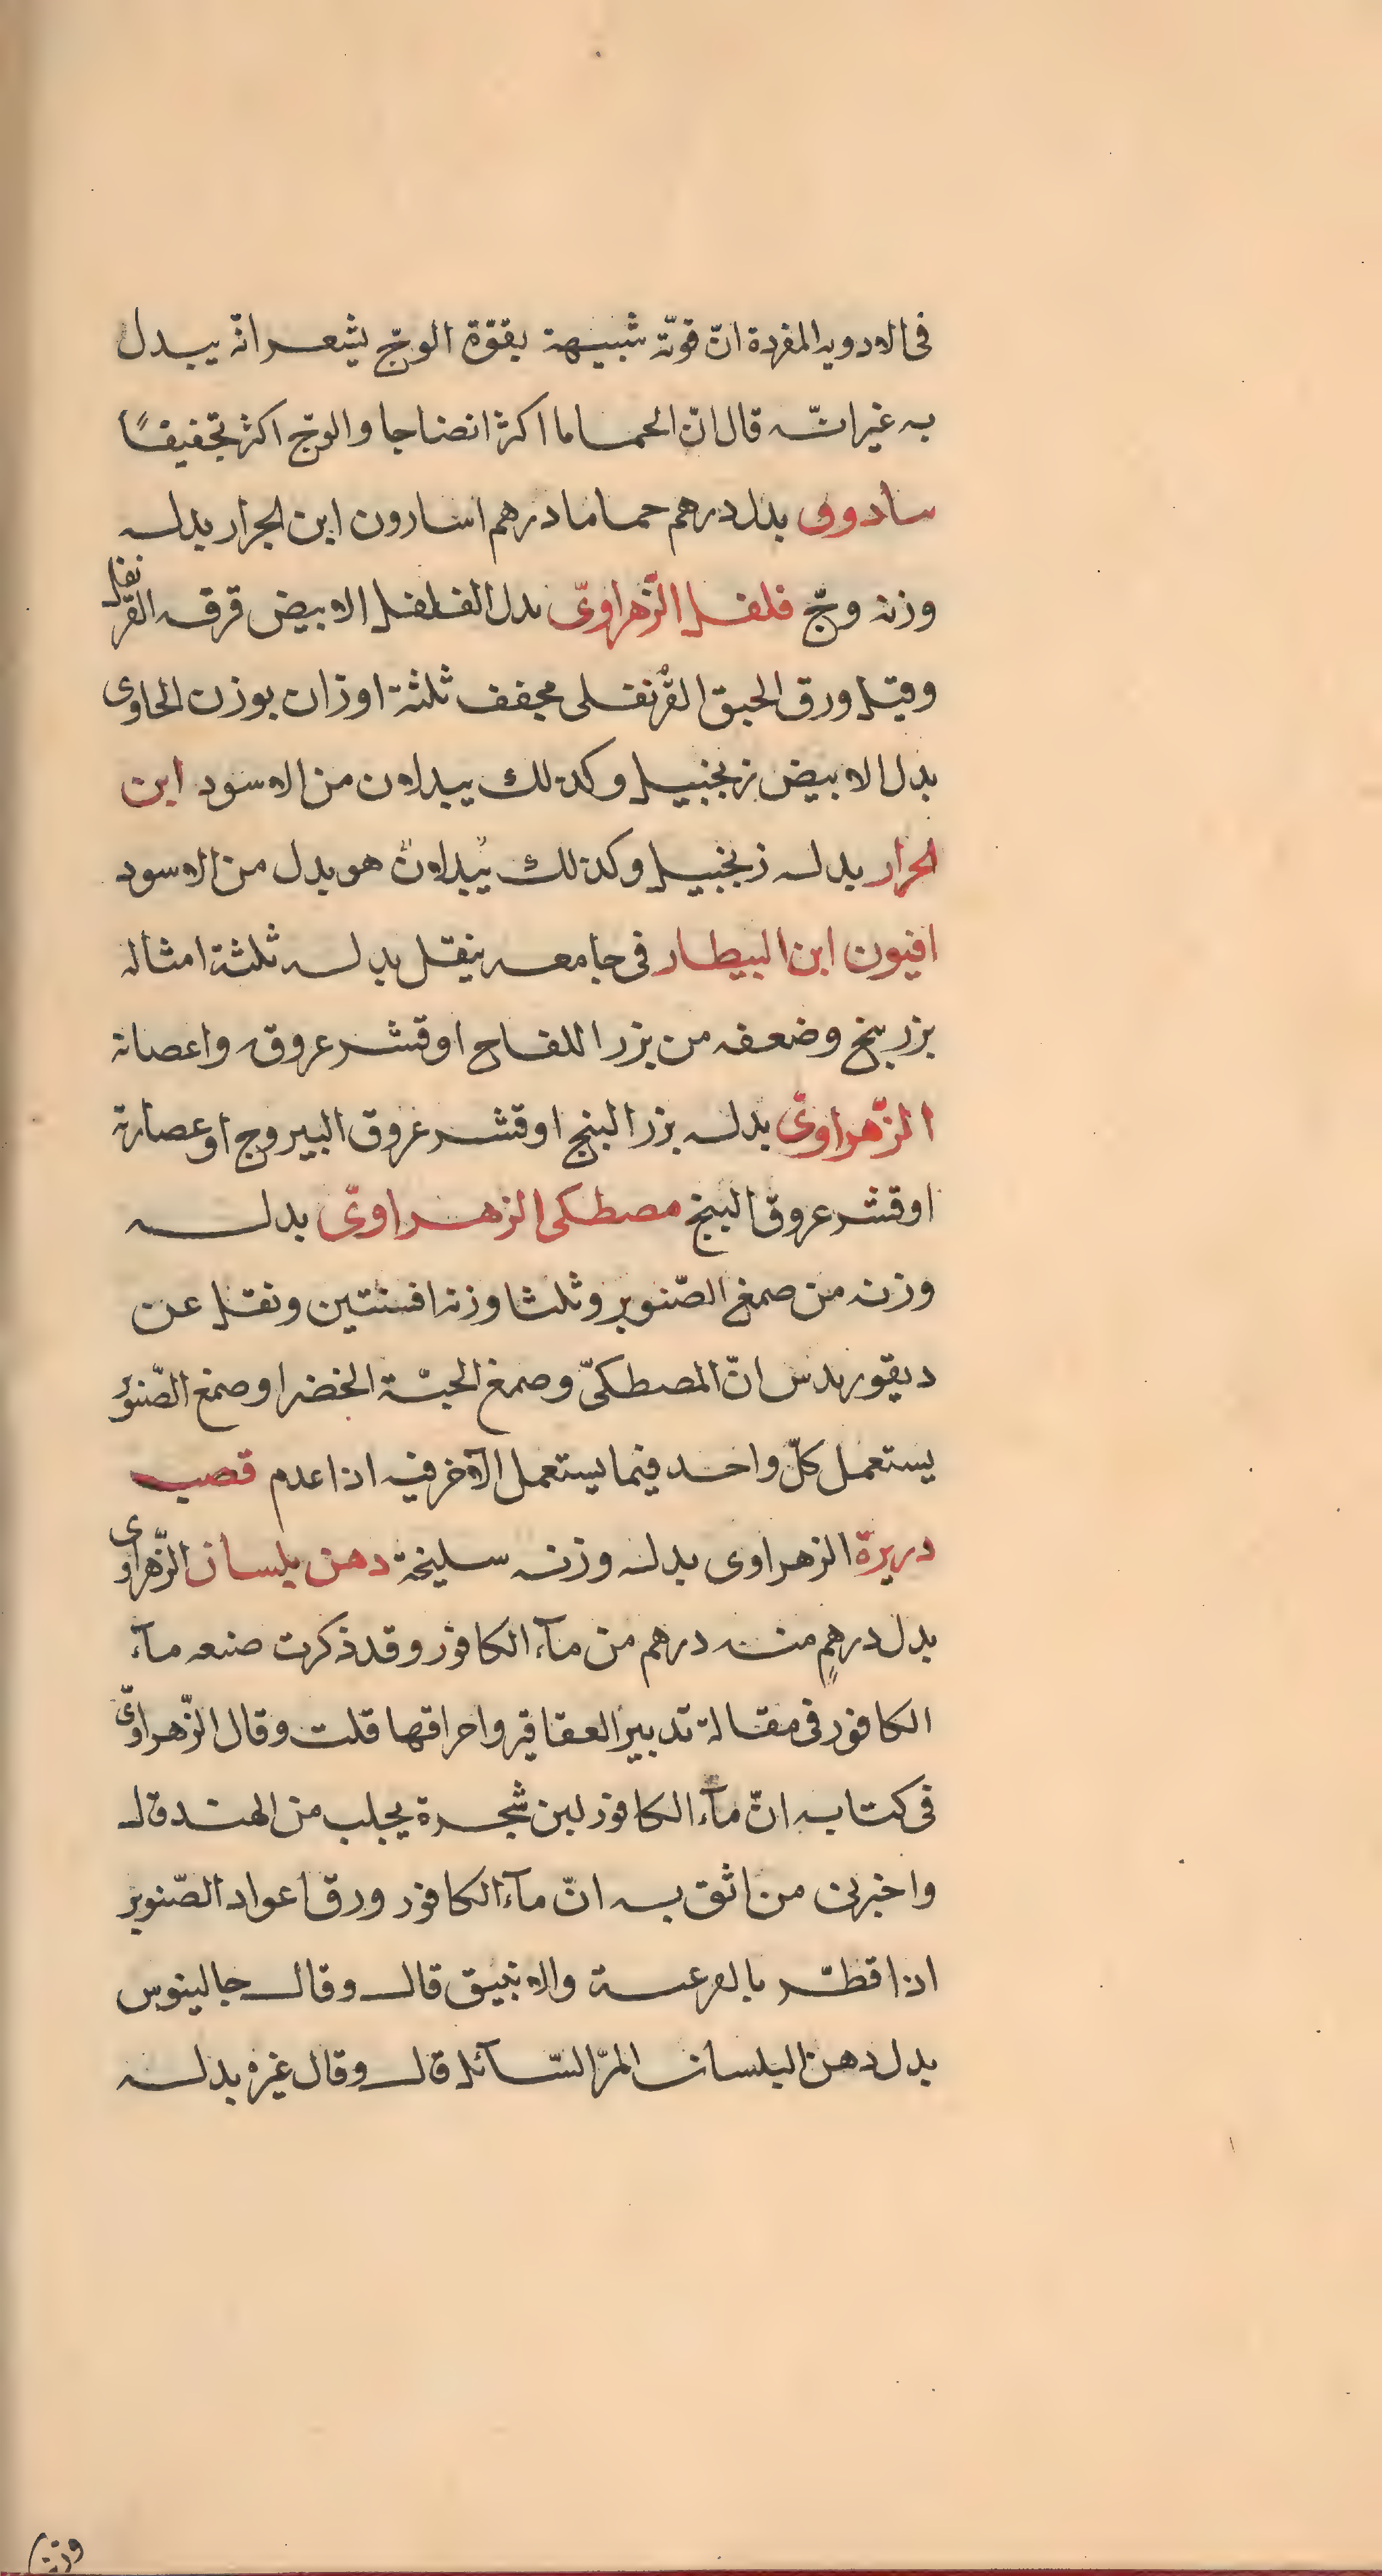 فى الادويه المفردة انّ قوتّه شبيهة بقوّة الوجّ يشعر انّه يبدل
به غير انّه قال انّ الحماما اكثر انضاجا والوجّ اكثر تجفيفًا
سادوى بدل درهم حماما درهم اسارون ابن الجزار بدله
وزنه وجّ فلفل الزّهراوىّ بدل الفلفل الابيض قرفه القرنفل
وقيل ورق الحبق القرنفلى مجفف ثلثة اوزان بوزن الحاوى
بدل الابيض زنجبيل وكذلك يبدلان من الاسود ابن
الجزار بدله زنجبيل وكذلك يبدلان هو بدل من الاسود
افيون ابن البيطار فى جامعه ينقل بدله ثلثة امثاله
بزر بنج وضعفه من بزر اللفاح او قشر عروق واعصانه
الزّهراوىّ بدله بزر البنج او قشر عروق اليبروج او عصارته
او قشر عروق البنج مصطكى الزهراوىّ بدله
وزنه من صمغ الصّنوبر وثلثا وزنه افسنتين ونقل عن
ديقوريدس انّ المصطكىّ وصمغ الحبّة الخضرا وصمغ الصّنوبر
يستعمل كلّ واحد فيما يستعمل الآخر فيه اذا عدم قصب
دريرة الزهراوى بدله وزنه سليخة دهن بلسان الزّهراوى
بدل درهمٍ منه درهم من مآء الكافور وقد ذكرت صنعه مآء
الكافور فى مقالة تدبير العقاقير واحراقها قلت وقال الزّهراوىّ
فى كتابه انّ مآء الكافور لبن شجرة يجلب من الهند قال
واخبرنى من اثق به انّ مآء الكافور ورق اعواد الصّنوبر
اذا قطّر بالقرعة والانبيق قال وقال جالينوس
بدل دهن البلسان المرّ السّآئل قال وقال غيره بدله
وزنه